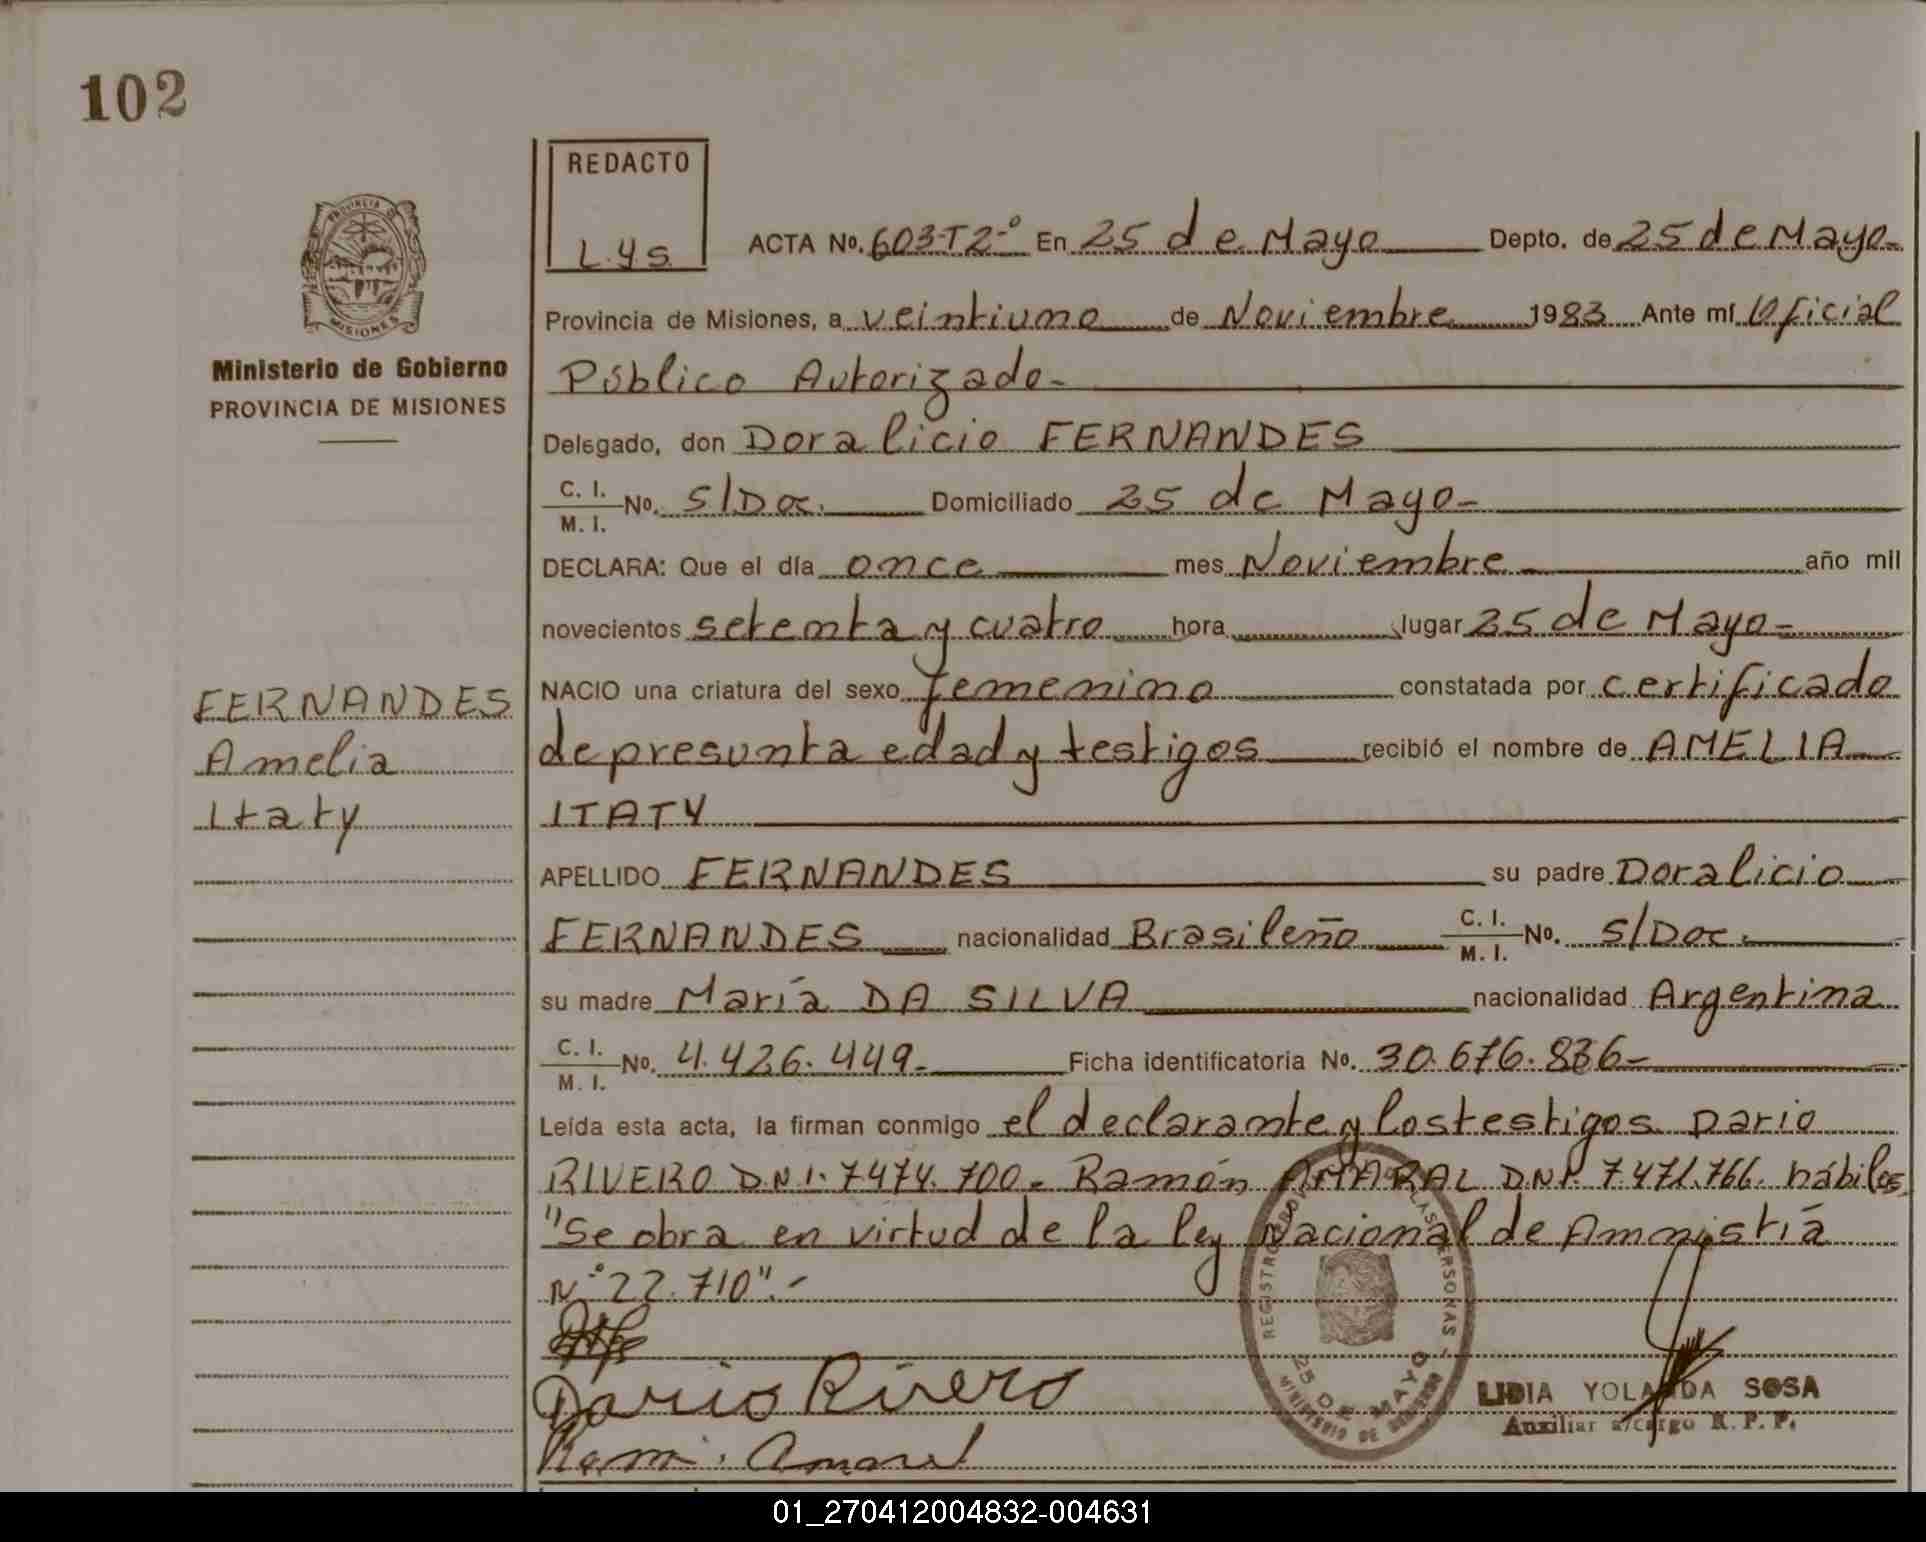 102
REDACTO
L.y.s.
PROVINCIA D
MISIONES
Ministerio de Gobierno
PROVINCIA DE MISIONES
ACTA No. 603-T2-º En 25 de Mayo Depto. de 25 de Mayo-
Provincia de Misiones, a veintiuno de Noviembre 1983 Ante mí Oficial
Público Autorizado-
Delegado, don Doralicio FERNANDES
C. I. / M. I. No. S/Doc. Domiciliado 25 de Mayo-
DECLARA: Que el día once mes Noviembre año mil
novecientos setenta y cuatro hora lugar 25 de Mayo-
NACIO una criatura del sexo femenino constatada por certificado
de presunta edad y testigos recibió el nombre de AMELIA
ITATY
FERNANDES
Amelia
Itaty
APELLIDO FERNANDES su padre Doralicio
FERNANDES nacionalidad Brasileño C. I. / M. I. No. S/Doc.
su madre María DA SILVA nacionalidad Argentina
C. I. / M. I. No. 4.426.449.- Ficha identificatoria No. 30.676.836-
Leída esta acta, la firman conmigo el declarante y los testigos Dario
RIVERO D.N.I. 7474.700- Ramón AMARAL DNI. 7.471.766. hábiles
"Se obra en virtud de la ley Nacional de Amnistía
Nº 22.710".-
Dario Rivero
Amaral
25 DE MAYO
MINISTERIO DE GOBIERNO
LIDIA YOLANDA SOSA
Auxiliar a/cargo R. P. P.
01_270412004832-004631